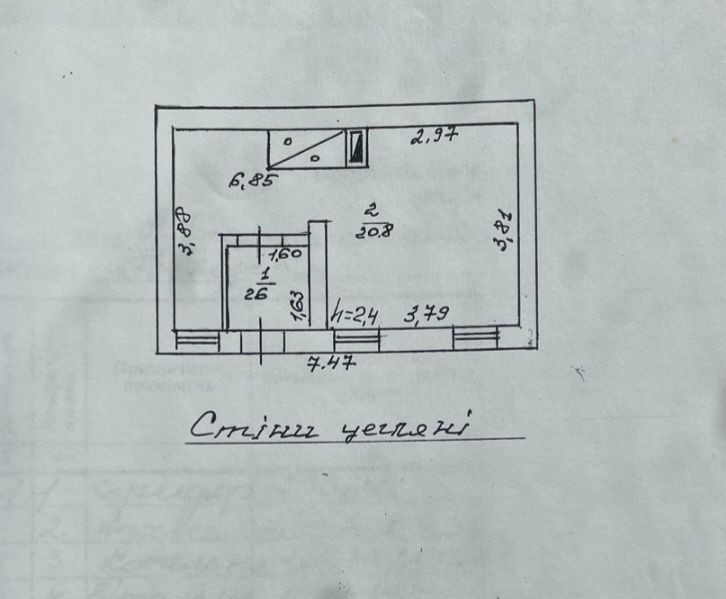 2,97
6,85
3,88
2
20.8
3,81
1,60
1
26
1,63
h=2,4
3,79
7.47
Стіни цегляні